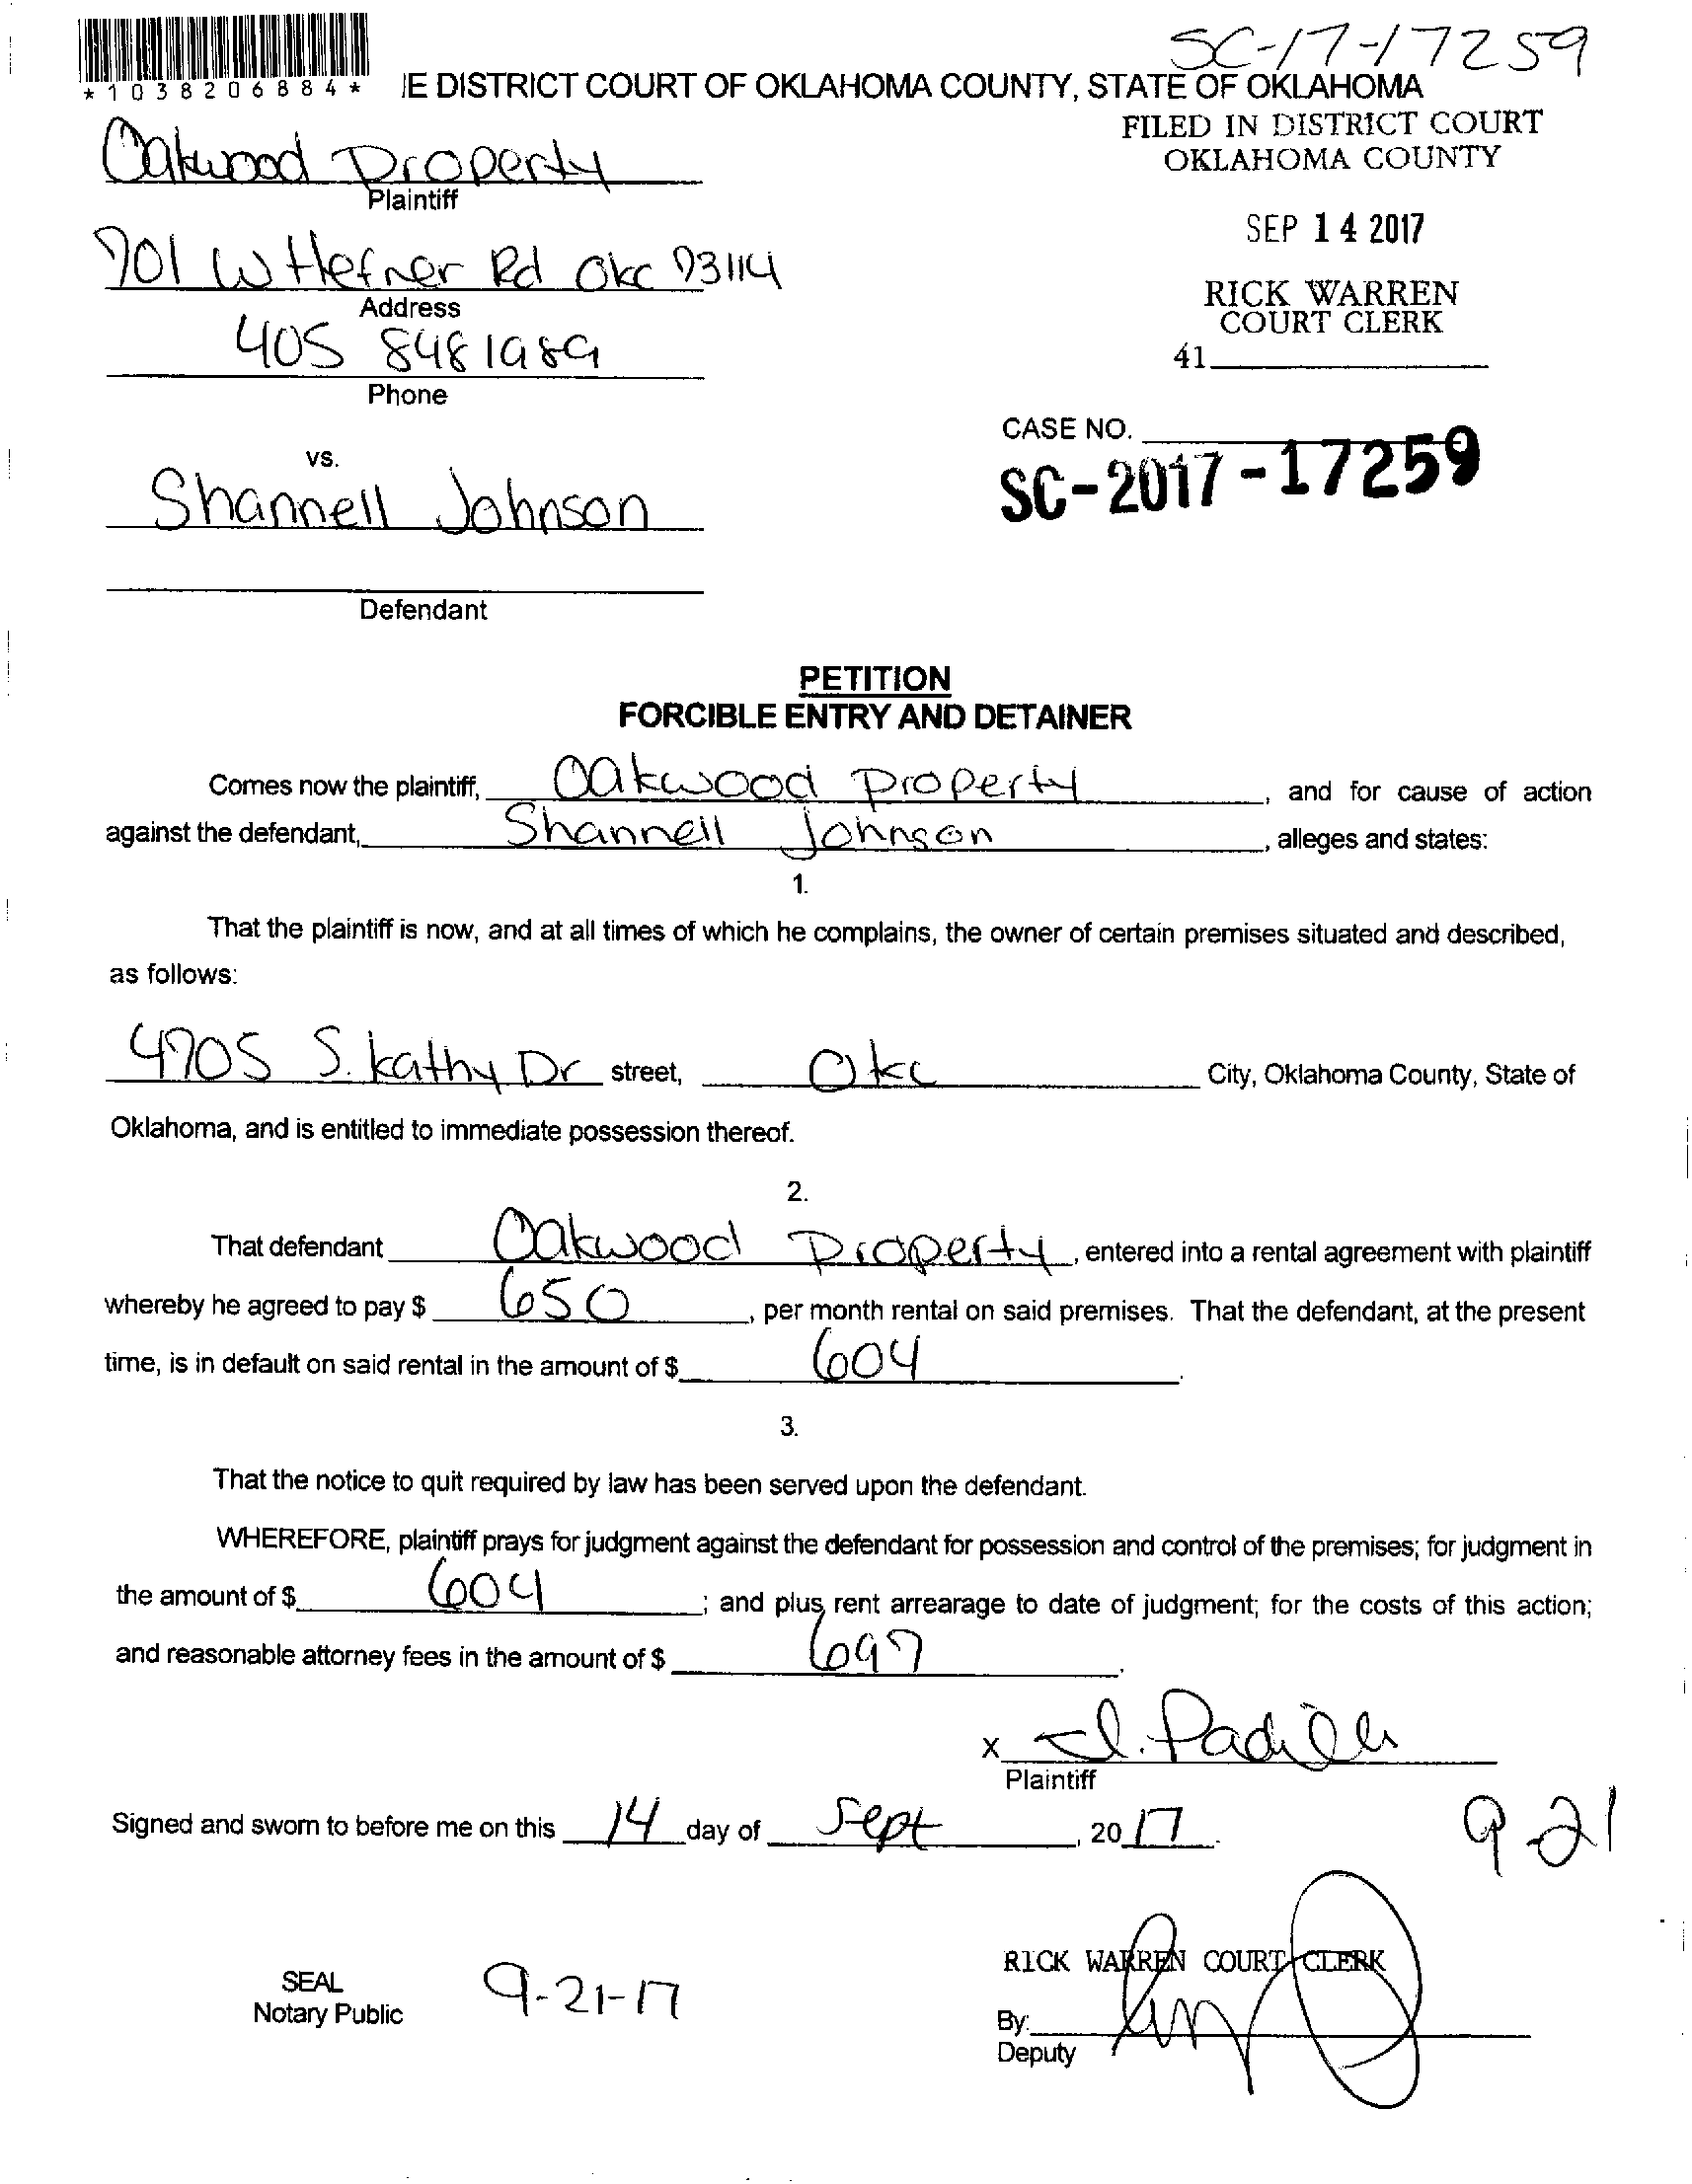 SC-17-17259
*1038206884*
IE DISTRICT COURT OF OKLAHOMA COUNTY, STATE OF OKLAHOMA
FILED IN DISTRICT COURT
OKLAHOMA COUNTY
Oakwood Property
Plaintiff
SEP 14 2017
701 W Hefner Rd Okc 73114
Address
RICK WARREN
COURT CLERK
405 848 1989
Phone
41
CASE NO.
SC-2017-17259
vs.
Shannell Johnson
Defendant
PETITION
FORCIBLE ENTRY AND DETAINER
Comes now the plaintiff, Oakwood Property, and for cause of action
against the defendant, Shannell Johnson, alleges and states:
1.
That the plaintiff is now, and at all times of which he complains, the owner of certain premises situated and described,
as follows:
4705 S. Kathy Dr street, Okc City, Oklahoma County, State of
Oklahoma, and is entitled to immediate possession thereof.
2.
That defendant Oakwood Property, entered into a rental agreement with plaintiff
whereby he agreed to pay $ 650, per month rental on said premises. That the defendant, at the present
time, is in default on said rental in the amount of $ 604.
3.
That the notice to quit required by law has been served upon the defendant.
WHEREFORE, plaintiff prays for judgment against the defendant for possession and control of the premises; for judgment in
the amount of $ 604; and plus rent arrearage to date of judgment; for the costs of this action;
and reasonable attorney fees in the amount of $ 697.
x I. Padilla
Plaintiff
Signed and sworn to before me on this 14 day of Sept, 2017.
9-21
RICK WARREN COURT CLERK
SEAL
Notary Public
9-21-17
By:
Deputy